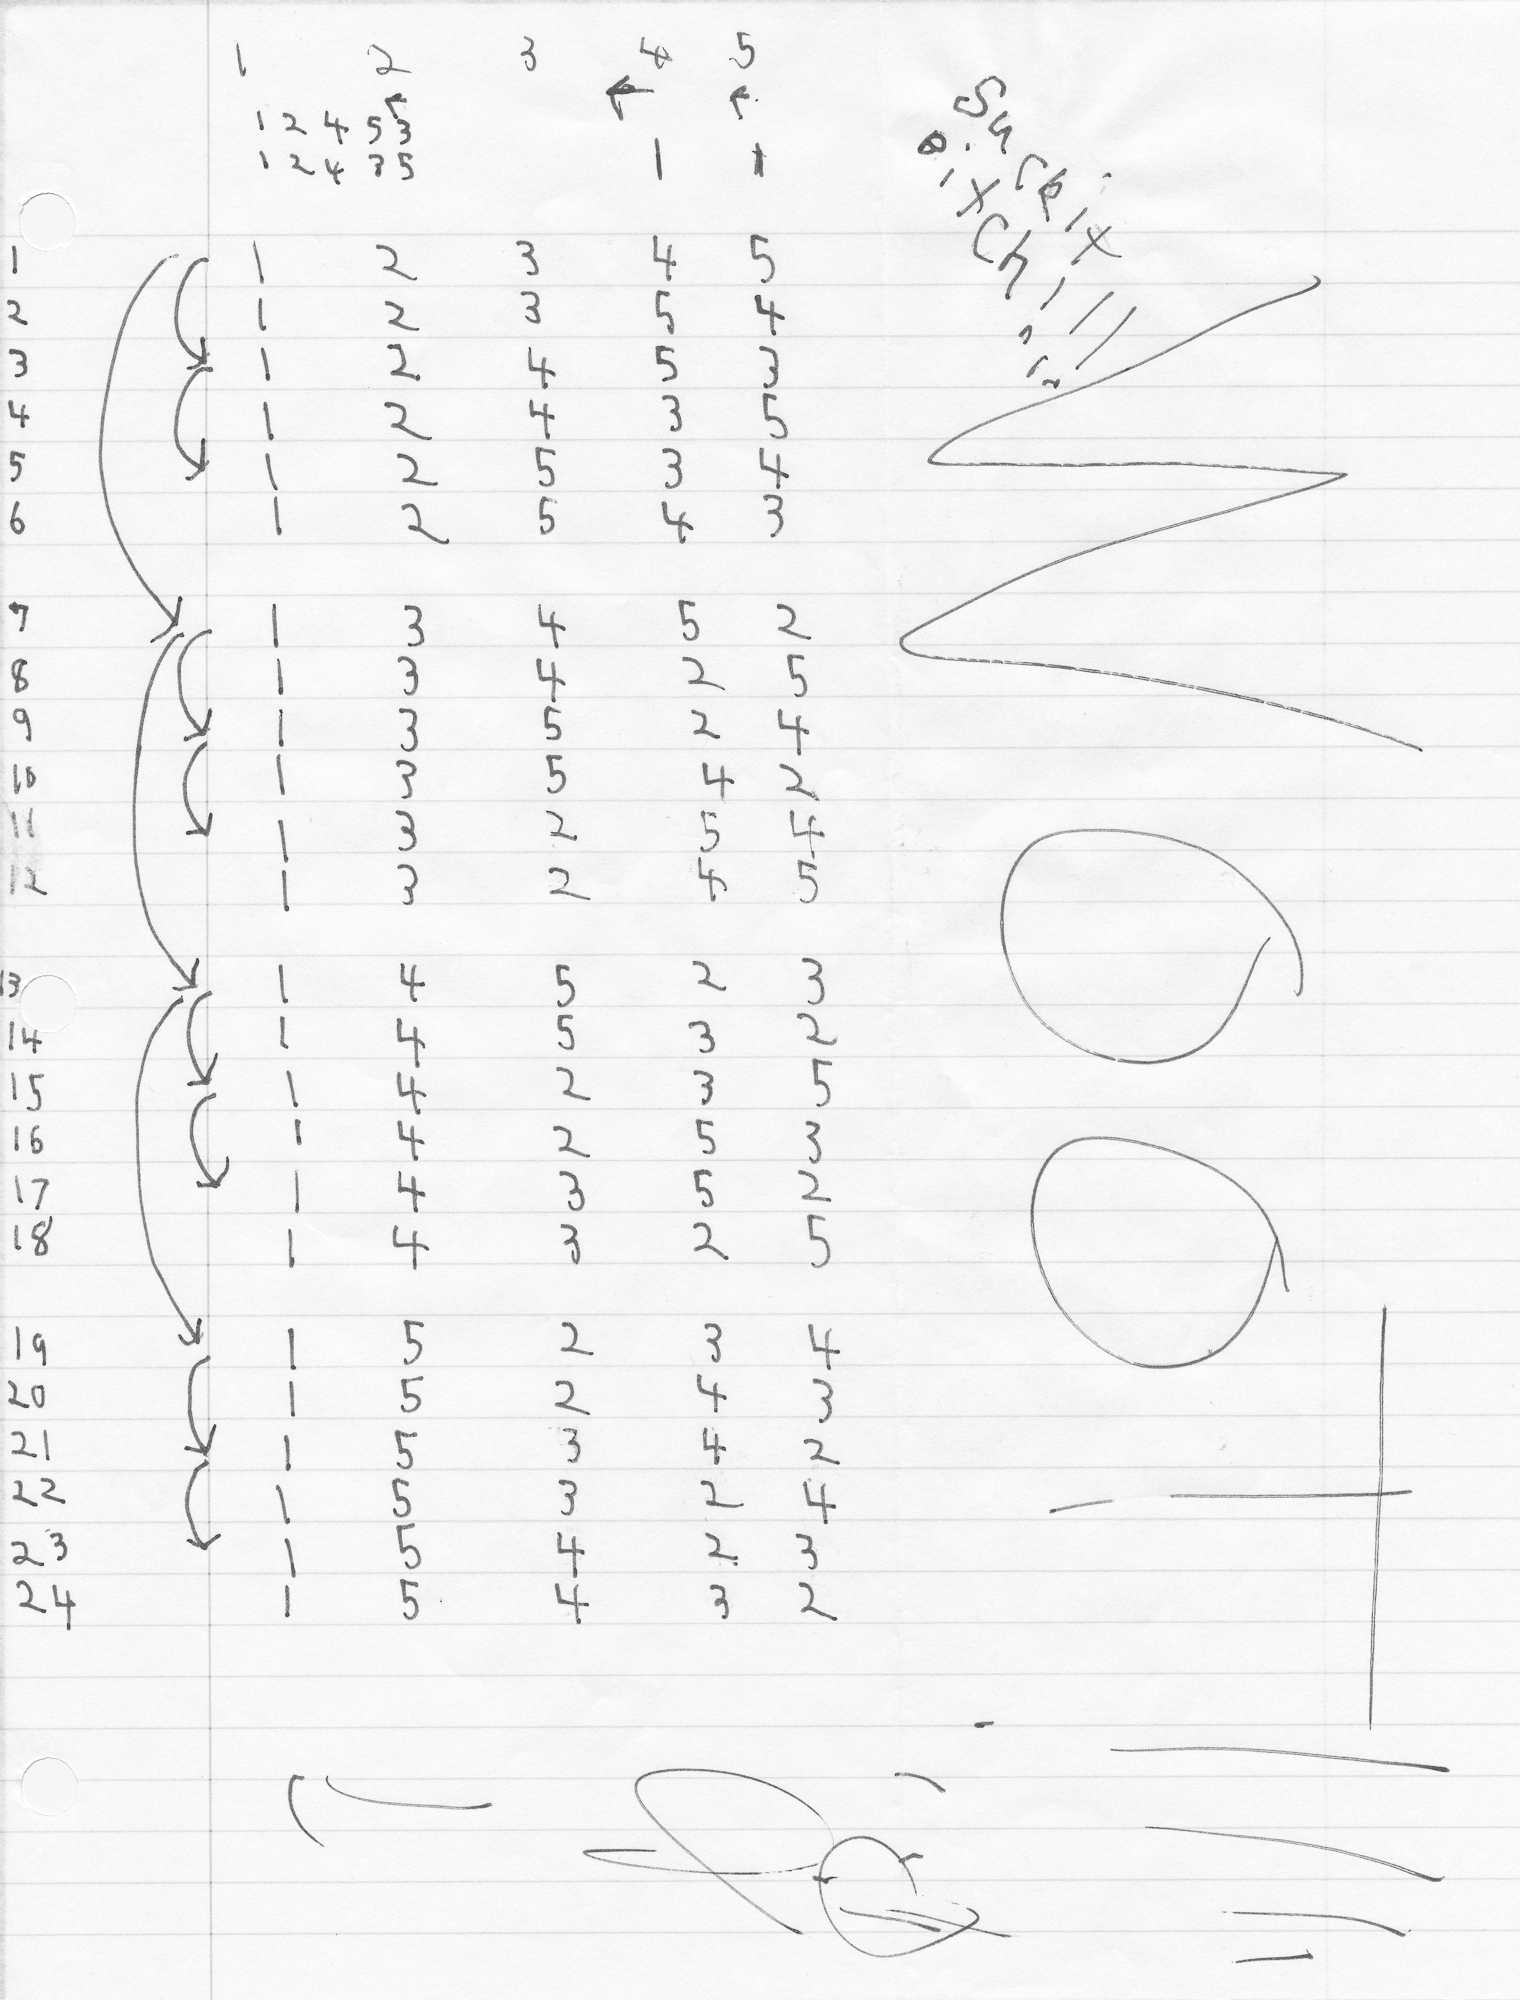 1 2 3 4 5
1 2 4 5 3
1 2 4 3 5
1 1
1 1 2 3 4 5
2 1 2 3 5 4
3 1 2 4 5 3
4 1 2 4 3 5
5 1 2 5 3 4
6 1 2 5 4 3
7 1 3 4 5 2
8 1 3 4 2 5
9 1 3 5 2 4
10 1 3 5 4 2
11 1 3 2 5 4
12 1 3 2 4 5
13 1 4 5 2 3
14 1 4 5 3 2
15 1 4 2 3 5
16 1 4 2 5 3
17 1 4 3 5 2
18 1 4 3 2 5
19 1 5 2 3 4
20 1 5 2 4 3
21 1 5 3 4 2
22 1 5 3 2 4
23 1 5 4 2 3
24 1 5 4 3 2
Suck it
Bitch!!!
WOOT!!!